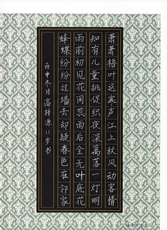 萧萧梧叶送寒声江上秋风动客情
知有儿童挑促织夜深篱落一灯明
雨前初见花间蕊雨后全无叶底花
蜂蝶纷纷过墙去却疑春色在邻家